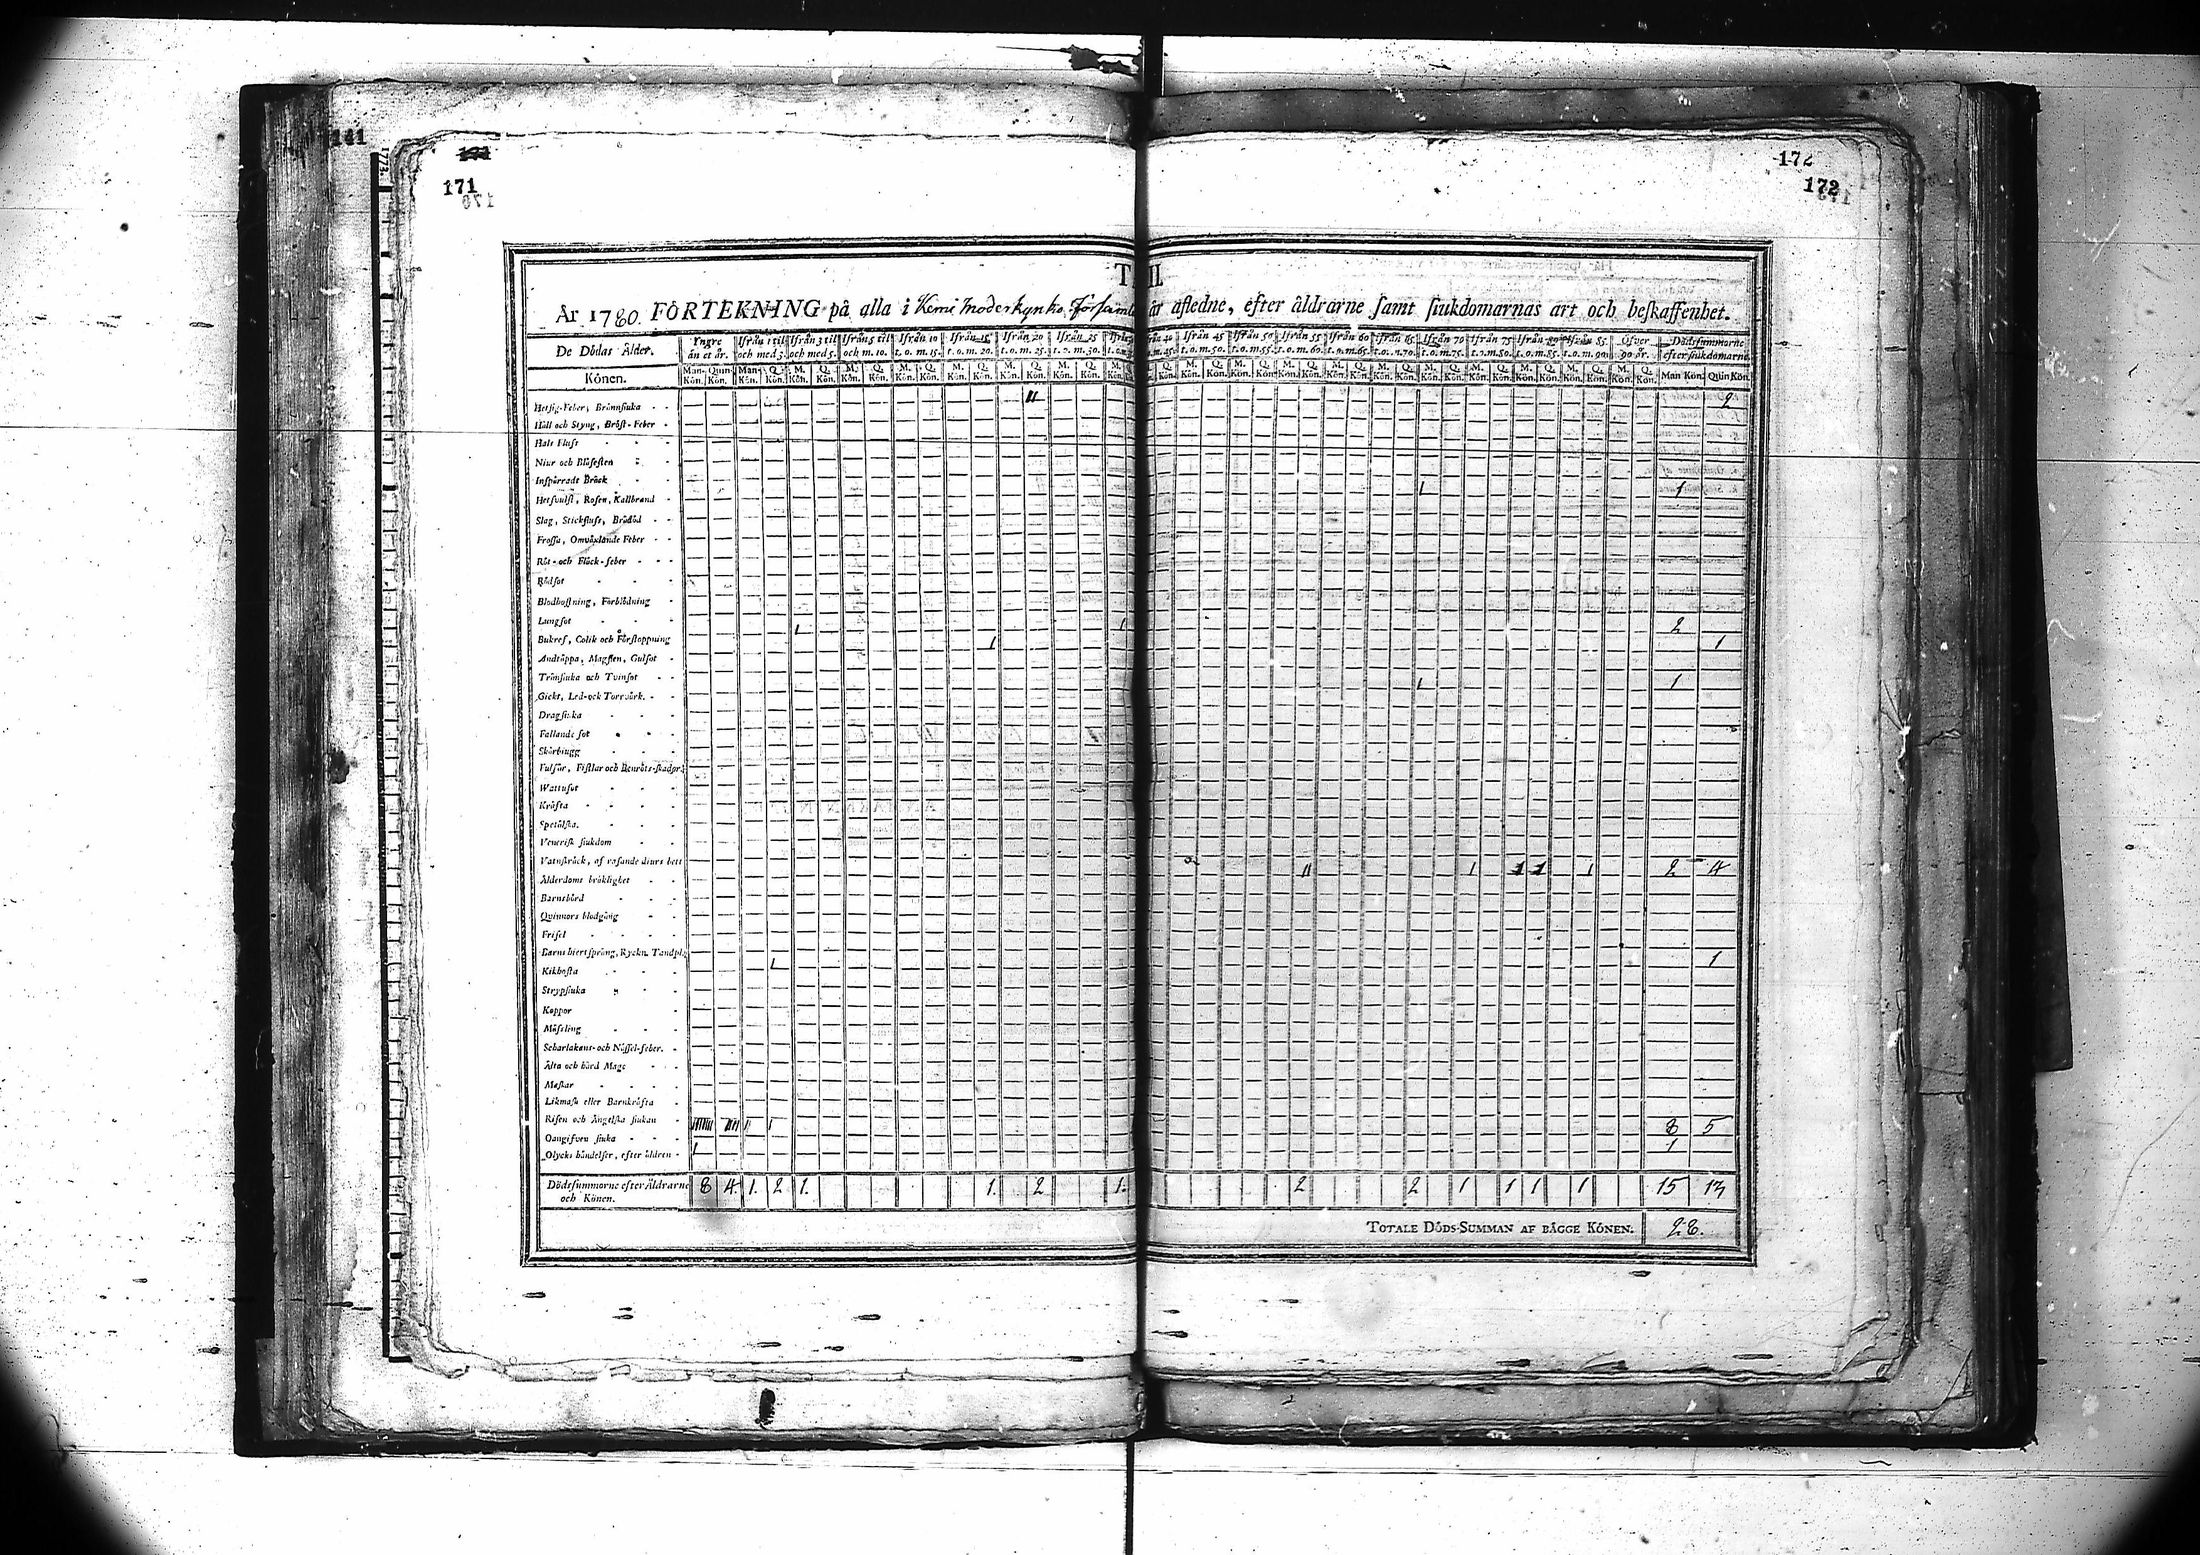 141
171
172
172
T II.
År 1780. FÖRTEKNING på alla i Kemi Moderkyrko Församl år afledne, efter åldrarne samt siukdomarnas art och beskaffenhet.
De Dödas Ålder. Yngre än et år. Ifrån 1 til och med 3. Ifrån 3 til och med 5. Ifrån 5 til och m. 10. Ifrån 10 t. o. m. 15. Ifrån 15 t. o. m. 20. Ifrån 20 t. o. m. 25. Ifrån 25 t. o. m. 30. Ifrån 45 t. o. m. 50. Ifrån 50 t. o. m. 55. Ifrån 55 t. o. m. 60. Ifrån 60 t. o. m. 65. Ifrån 65 t. o. m. 70. Ifrån 70 t. o. m. 75. Ifrån 75 t. o. m. 80. Ifrån 80 t. o. m. 85. Ifrån 85 t. o. m. 90. Öfver 90 år. Dödssummorne efter siukdomarne
Könen. Man-Kön. Quin-Kön. Man-Kön. Q. Kön. M. Kön. Q. Kön. M. Kön. Q. Kön. M. Kön. Q. Kön. M. Kön. Q. Kön. M. Kön. Q. Kön. M. Kön. Q. Kön. Man Kön. Quin Kön.
Hetsig-Feber, Brännsiuka - - II 2
Håll och Styng, Bröst-Feber -
Hals Fluss - - -
Niur och Blåsesten - -
Inspärradt Bråck - -
Hetsvulst, Rosen, Kallbrand - 1 1
Slag, Stickfluss, Brådöd - -
Frossa, Omväxlande Feber - -
Röt- och Fläck-feber - - -
Rödsot - - -
Blodhostning, Förblödning -
Lungsot - - - 1 1 2
Bukref, Colik och Förstoppning 1 1
Andtäppa, Magsten, Gulsot -
Trånsiuka och Tvinsot - - 1 1
Gickt, Led-och Torrvärk. - -
Dragsiuka - - -
Fallande sot - - -
Skörbiugg - - -
Fulsår, Fistlar och Benröts-skador
Wattusot - - -
Kräfta - - - -
Spetälska. - - -
Venerisk siukdom - -
Vatuskräck, af rasande diurs bett
Ålderdoms bräklighet - - II 1 1 1 1 2 4
Barnsbörd - - -
Qvinnors blodgång - -
Frisel - - - -
Barns hiertsprång, Ryckn. Tandpl.
Kikhosta - - - 1 1
Strypsiuka - -
Koppor -
Mässling - - -
Scharlakans- och Nässel-feber. -
Älta och hård Mage - -
Maskar - - - -
Likmask eller Barnkräfta -
Risen och Ängelska siukan - IIIIIII IIII II 1 8 5
Oangifven siuka - - - 1 1
Olycks händelser, efter åldren -
Dödssummorne efter Åldrarne och Könen. 8 4. 1. 2 1. 1. 2 1. 2 2 1 1 1 1 15 13
TOTALE DÖDS-SUMMAN AF BÄGGE KÖNEN. 28.